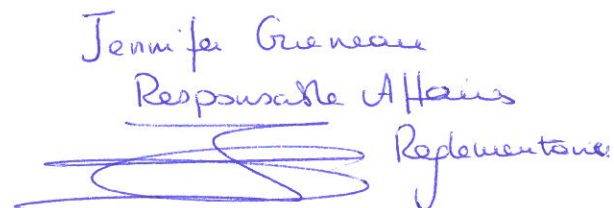 Jennifer Gueneau
Responsable Affaires
Reglementaires